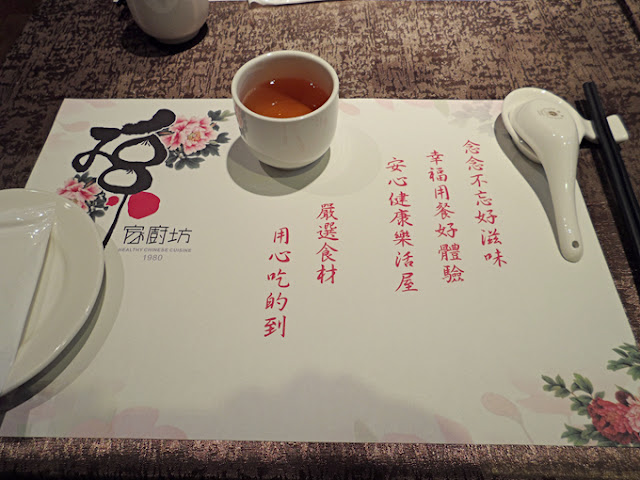 念念不忘好滋味
幸福用餐好體驗
安心健康樂活屋
嚴選食材
用心吃的到
家廚坊
HEALTHY CHINESE CUISINE
1980